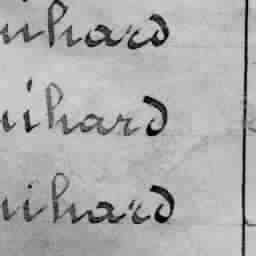 uihard
uihard
uihard